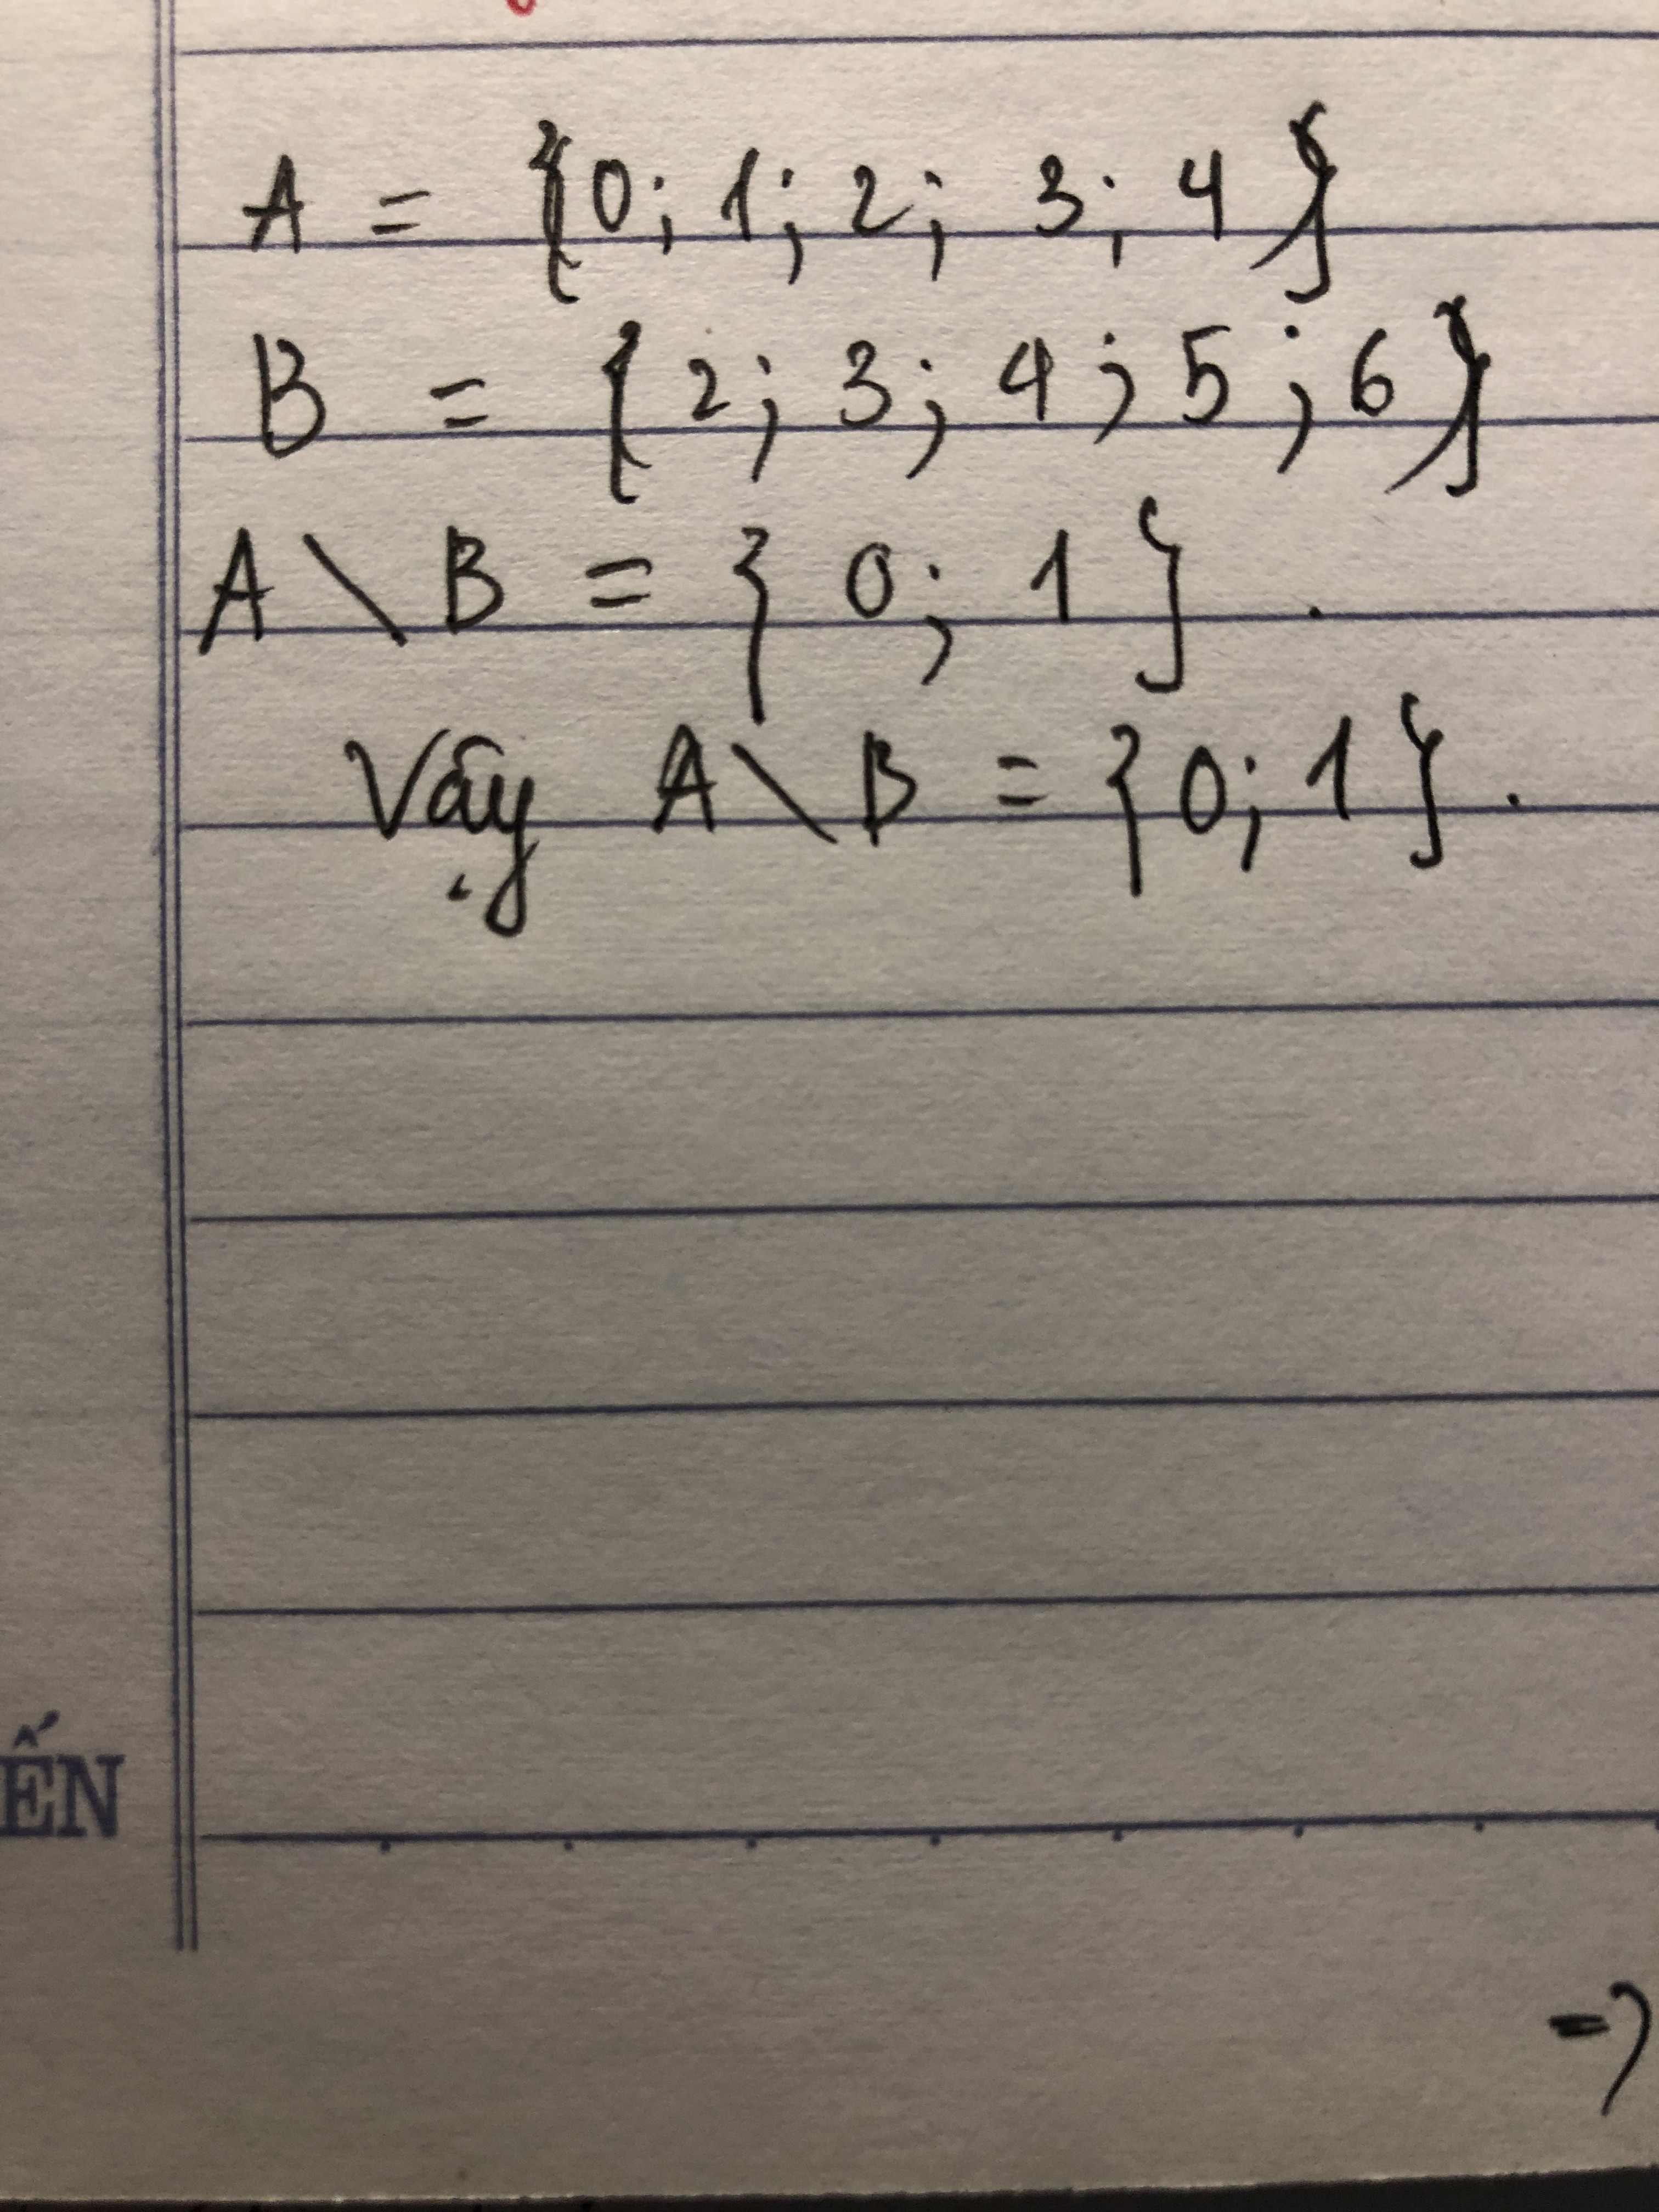 A = {0; 1; 2; 3; 4}
B = {2; 3; 4; 5; 6}
A \ B = {0; 1}.
Vậy A \ B = {0; 1}.
ẾN
=>